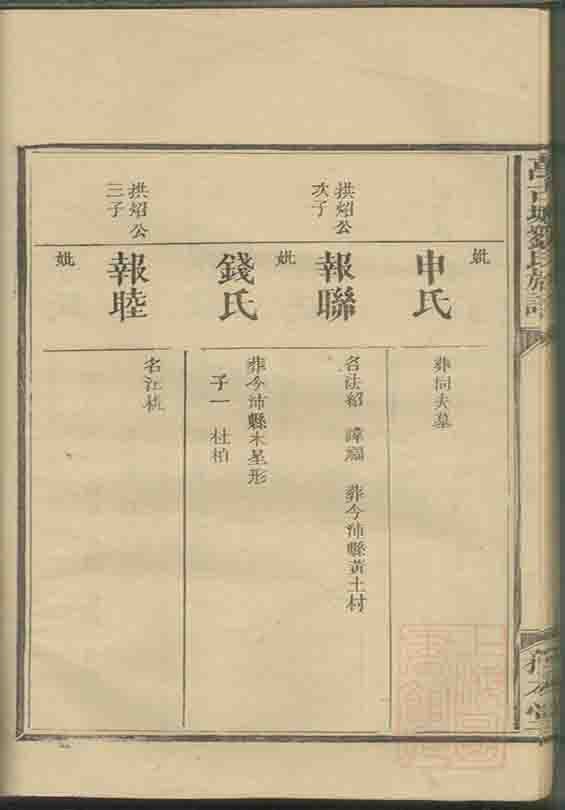 妣
申氏
葬同夫墓
拱炤公
次子
報聯
名法紹 諱福 葬今沛縣黃土村
妣
錢氏
葬今沛縣木星形
子一 杜柏
拱炤公
三子
報睦
名江
妣
劉氏族譜